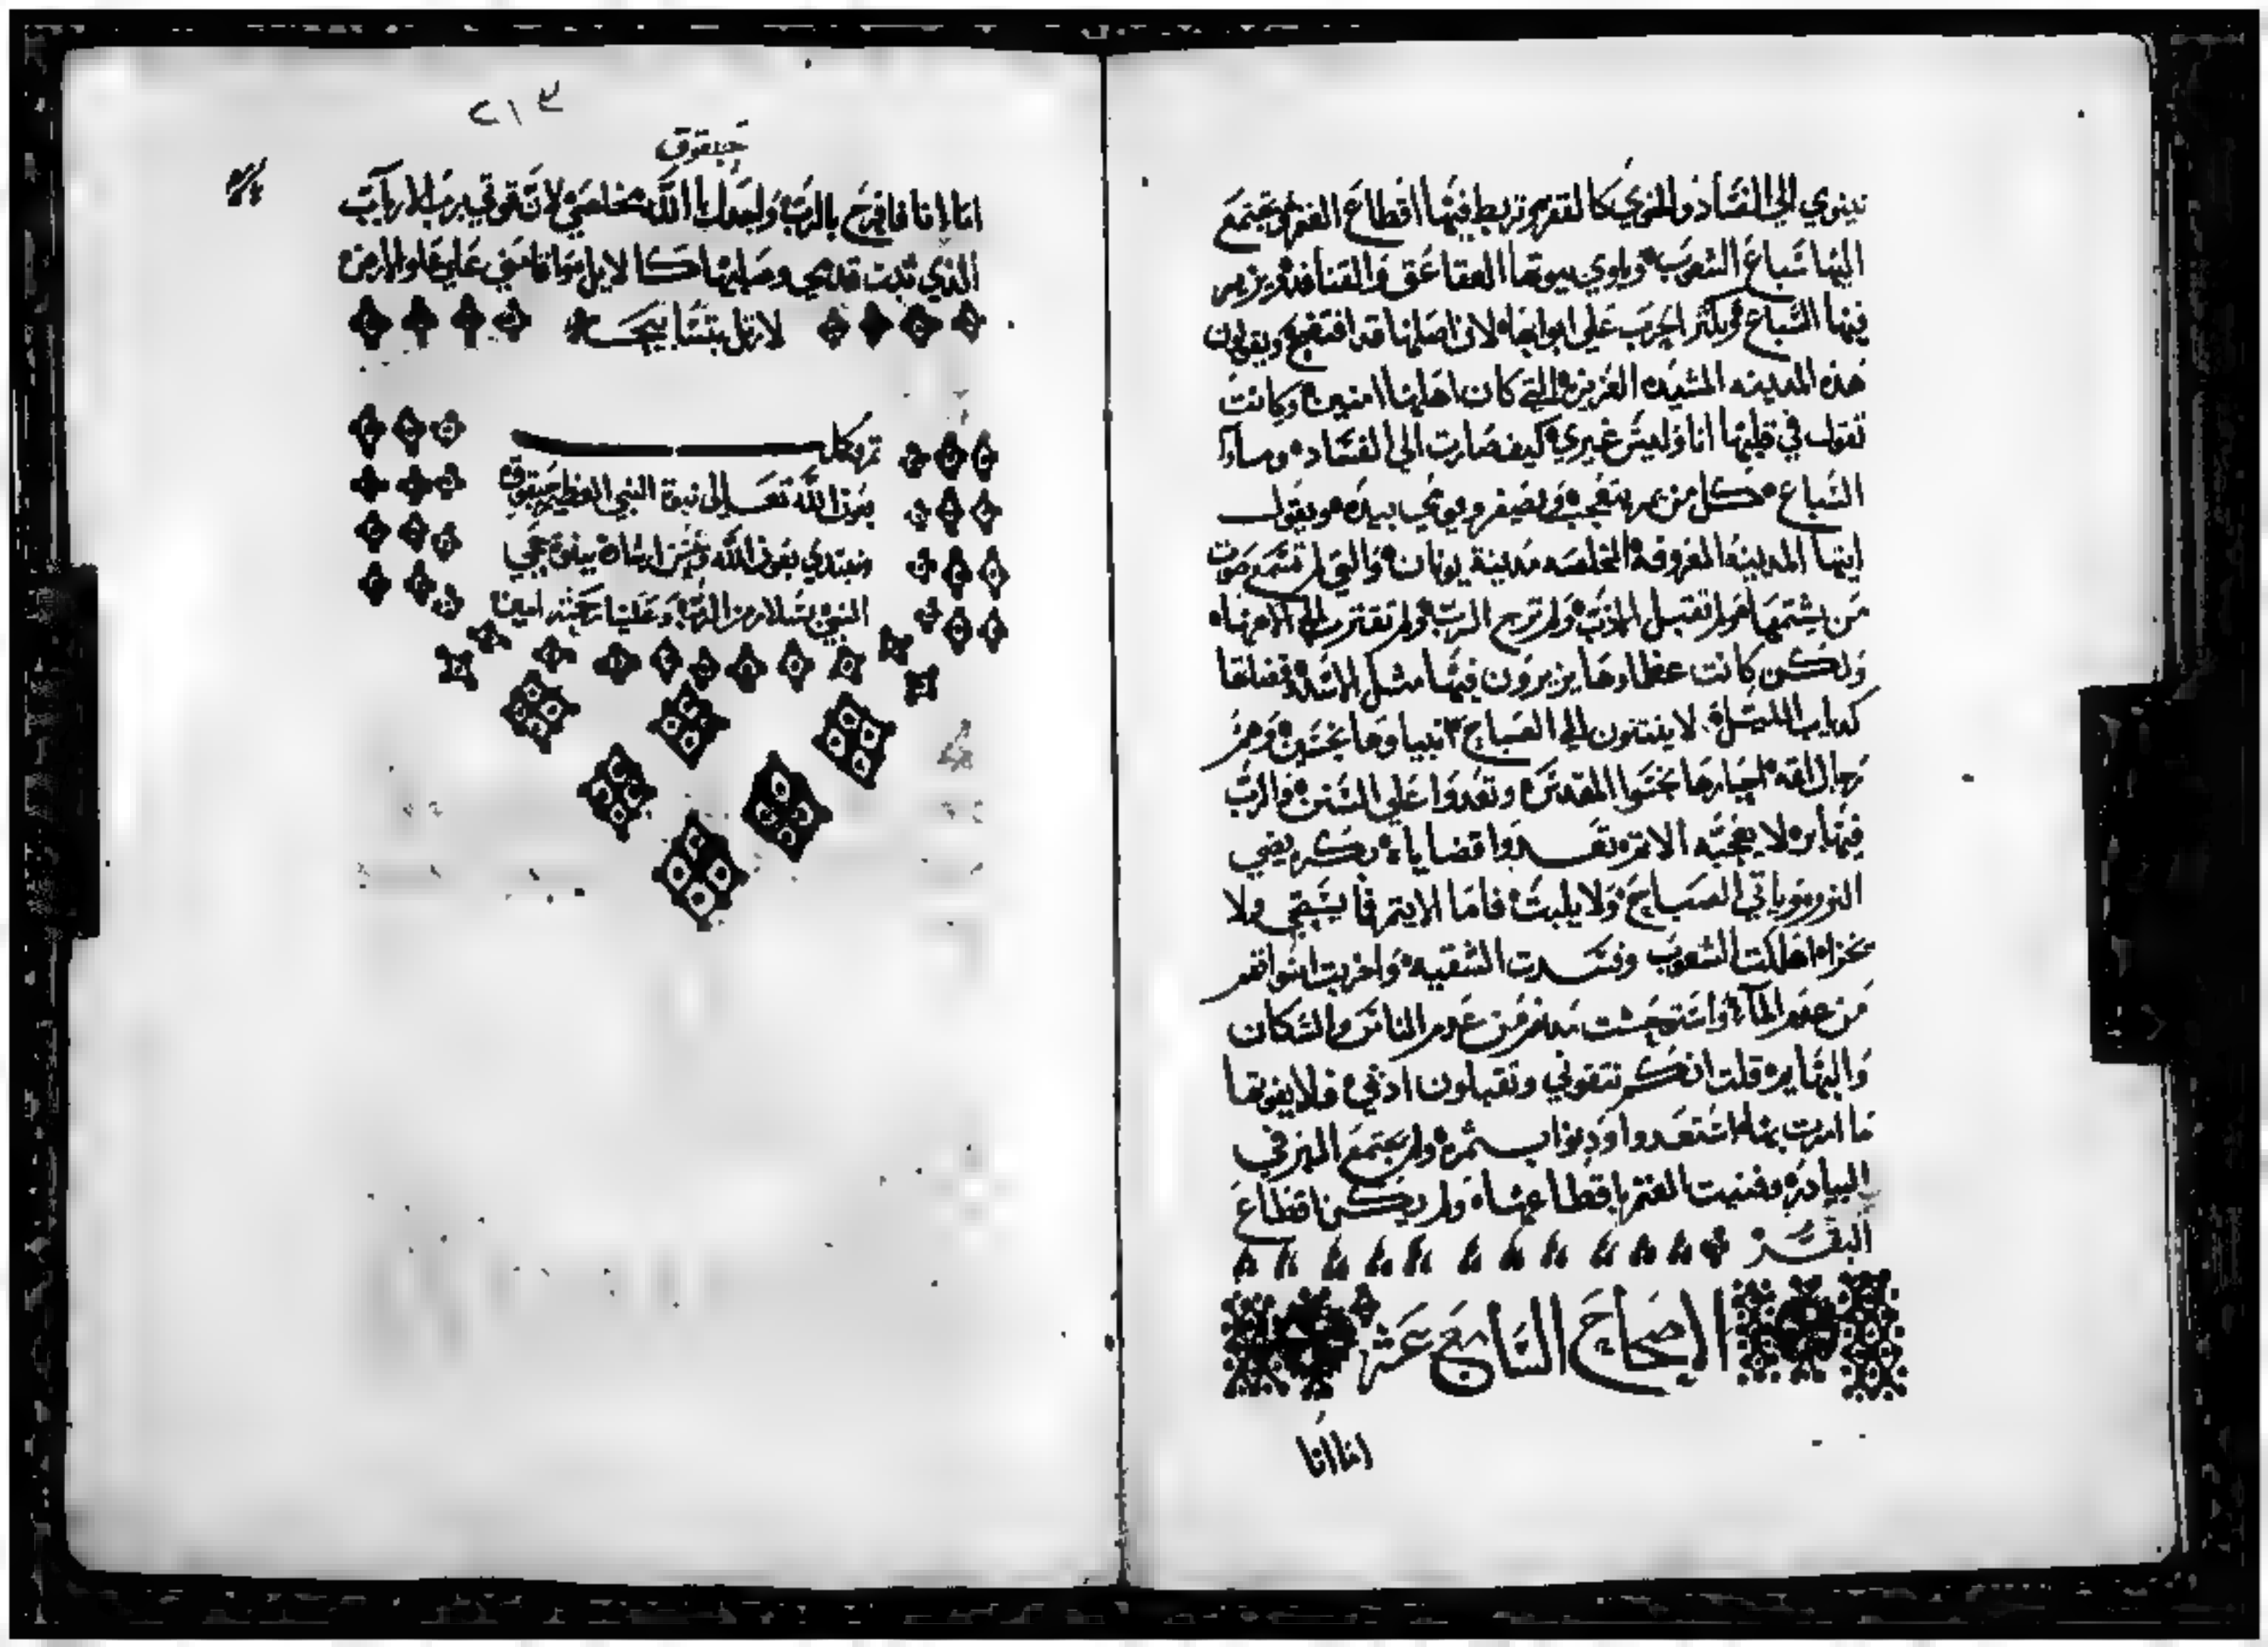 نينوي الي الفساد والخزي كالقفره وتربط فيها اقطاع الغنم وتجتمع
اليها سباع الشعوب وياوي بيوتها العقاعق والقنافد ويزير
فيها السباع ويكثر الخرب علي ابوابها لان اصلها قد افتضح ويقولون
هذه المدينه المشيده العزيزه التي كان اهلها امنين وكانت
تقول في قلبها انا وليس غيري كيف صارت الي الفساد وماوا
السباع كل من مر بها يتعجب ويصفر ويومي بيده ويقول
ايتها المدينه المعروفه المخلصه مدينة يونان والتي لم تسمع صوت
من يشتمها ولم تقبل الادب ولم ترج الرب ولم تقترب الي الاهها
ولكن كانت عظماوها يزيرون فيها مثل الاسد وقضاتها
كدياب الليل لا ينتنون الي الصباح انبياوها نجسين وهم
رجال افه احبارها نجسوا المقدس وتعدوا علي السنن والرب
فيها بر لا يعجبه الاثم تفسدوا قضاياه بكره يضي
النور وياتي الصباح ولا يلبث فاما الاثيم فما يستحي ولا
يخزاه اهلكت الشعوب وفسدت الشقيه واخربت اسواقهم
من عدم الماا واستوحشت مدنهم من عدم الناس والسكان
والبهايم قلت انكم تتقوني وتقبلون ادبي فلا يفوتها
ما امرت بها استعدوا وديوا ثمره ولم يجتمع الميز في
البيادر وفنيت الغنم باقطاعها ولم يكن اقطاع
البقر
الاصحاح التاسع عشر
اما انا
٢١٣
حبقوق
اما انا فافرح بالرب وابتهل بالله مخلصي لان قوتي برب الارباب
الذي ثبت قدمي وصلبها كالايل واقامني علي علو الارض
لازيل بتسابيحه
تم وكمل
بعون الله تعالي نبوة النبي العظيم حبقوق
ونبتدي بعون الله وحسن ارشاده بنبوة حجي
النبي سلام من الرب وعلينا رحمته امين